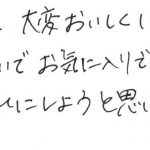 大変おいしくし
いで お気に入りで
んにしようと思い